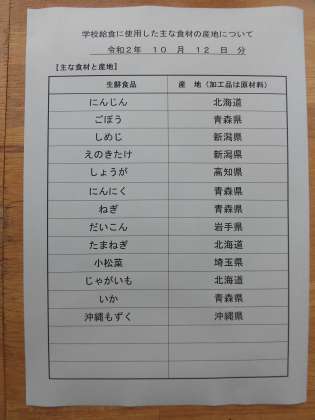 学校給食に使用した主な食材の産地について
令和２年　１０　月　１２　日　分
【主な食材と産地】
生鮮食品　産　地（加工品は原材料）
にんじん　北海道
ごぼう　青森県
しめじ　新潟県
えのきたけ　新潟県
しょうが　高知県
にんにく　青森県
ねぎ　青森県
だいこん　岩手県
たまねぎ　北海道
小松菜　埼玉県
じゃがいも　北海道
いか　青森県
沖縄もずく　沖縄県